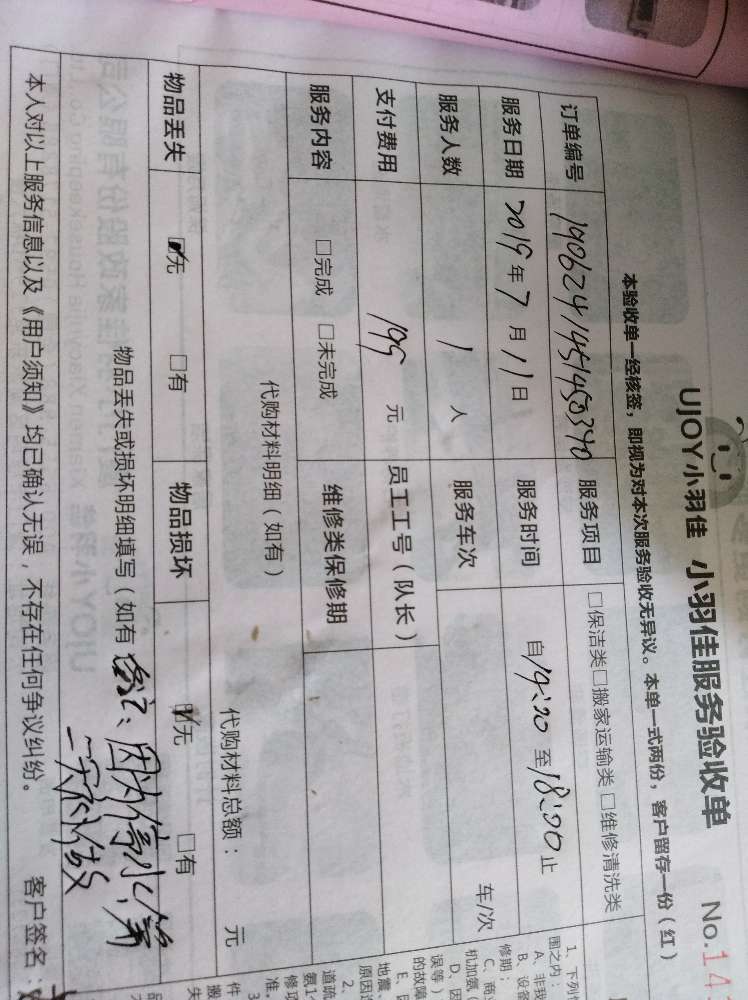 UJOY小羽佳 小羽佳服务验收单 No.14
本验收单一经核签，即视为对本次服务验收无异议。本单一式两份，客户留存一份（红）
订单编号 1906241451450340 服务项目 □保洁类□搬家运输类 □维修清洗类
服务日期 2019年7月11日 服务时间 自14:00 至18:00止
服务人数 1人 服务车次 车/次
支付费用 195元 员工工号（队长）
服务内容 □完成 □未完成 维修类保修期
代购材料明细（如有） 代购材料总额： 元
物品丢失 ☑无 □有 物品损坏 ☑无 □有
物品丢失或损坏明细填写（如有 备注：因为停水，第
一次做
本人对以上服务信息以及《用户须知》均已确认无误，不存在任何争议纠纷。 客户签名：
1、下列
围之内：
A、非我
B、设备
修期：
C、商
机加氨（
D、因
误等）
的故障
E、因
地震、
原因造
2、
道疏
氨1个
修项
准。
3
件
搬
失